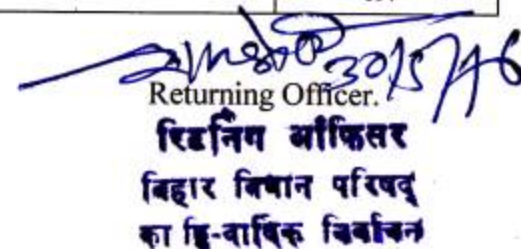 30/5/16
Returning Officer.
रिटर्निंग ऑफिसर
बिहार विधान परिषद्
का द्वि-वार्षिक निर्वाचन